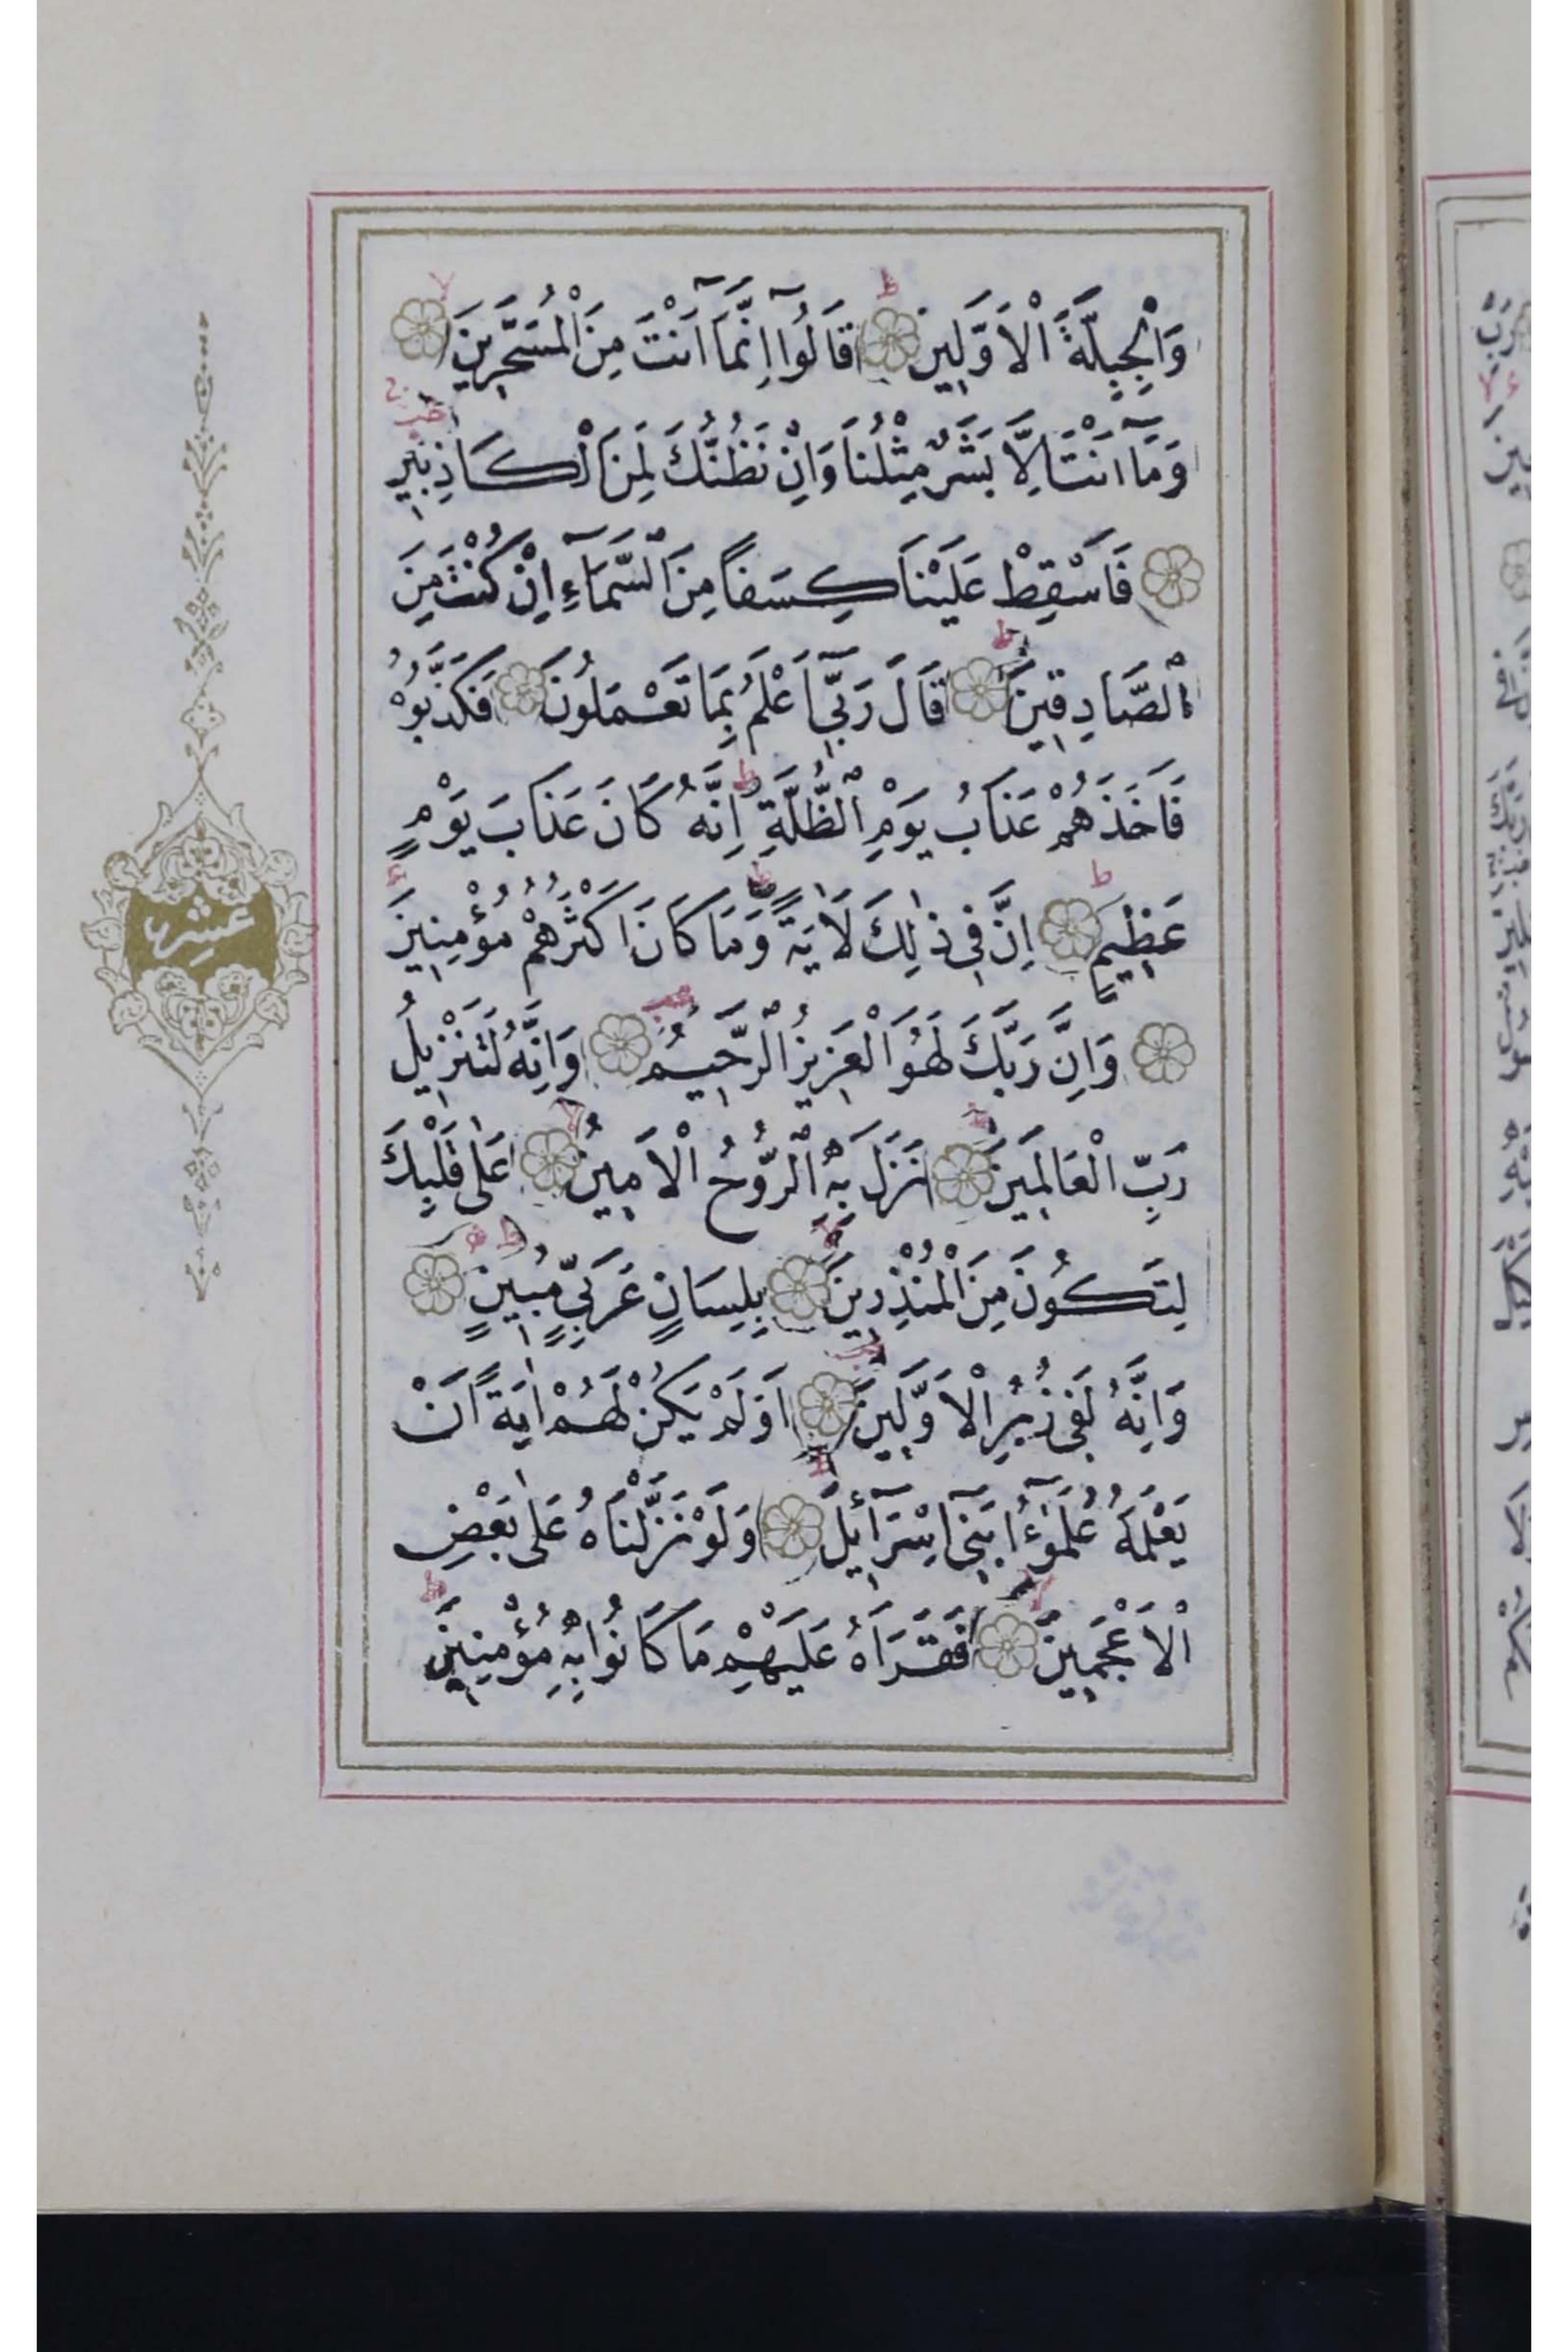 وَالْجِبِلَّةَ الْاَوَّلِينَ قَالُوٓا اِنَّمَٓا اَنْتَ مِنَ الْمُسَحَّرِينَ
وَمَٓا اَنْتَ اِلَّا بَشَرٌ مِثْلُنَا وَاِنْ نَظُنُّكَ لَمِنَ الْكَاذِبِينَ
فَاَسْقِطْ عَلَيْنَا كِسَفاً مِنَ السَّمَٓاءِ اِنْ كُنْتَ مِنَ
الصَّادِقِينَ قَالَ رَبِّٓي اَعْلَمُ بِمَا تَعْمَلُونَ فَكَذَّبُوهُ
فَاَخَذَهُمْ عَذَابُ يَوْمِ الظُّلَّةِ اِنَّهُ كَانَ عَذَابَ يَوْمٍ
عَظِيمٍ اِنَّ فِي ذٰلِكَ لَاٰيَةً وَمَا كَانَ اَكْثَرُهُمْ مُؤْمِنِينَ
عشر
وَاِنَّ رَبَّكَ لَهُوَ الْعَزِيزُ الرَّحِيمُ وَاِنَّهُ لَتَنْزِيلُ
رَبِّ الْعَالَمِينَ نَزَلَ بِهِ الرُّوحُ الْاَمِينُ عَلٰى قَلْبِكَ
لِتَكُونَ مِنَ الْمُنْذِرِينَ بِلِسَانٍ عَرَبِيٍّ مُبِينٍ
وَاِنَّهُ لَفِي زُبُرِ الْاَوَّلِينَ اَوَلَمْ يَكُنْ لَهُمْ اٰيَةً اَنْ
يَعْلَمَهُ عُلَمٰٓؤُا بَنِٓي اِسْرَٓائِيلَ وَلَوْ نَزَّلْنَاهُ عَلٰى بَعْضِ
الْاَعْجَمِينَ فَقَرَاَهُ عَلَيْهِمْ مَا كَانُوا بِهِ مُؤْمِنِينَ